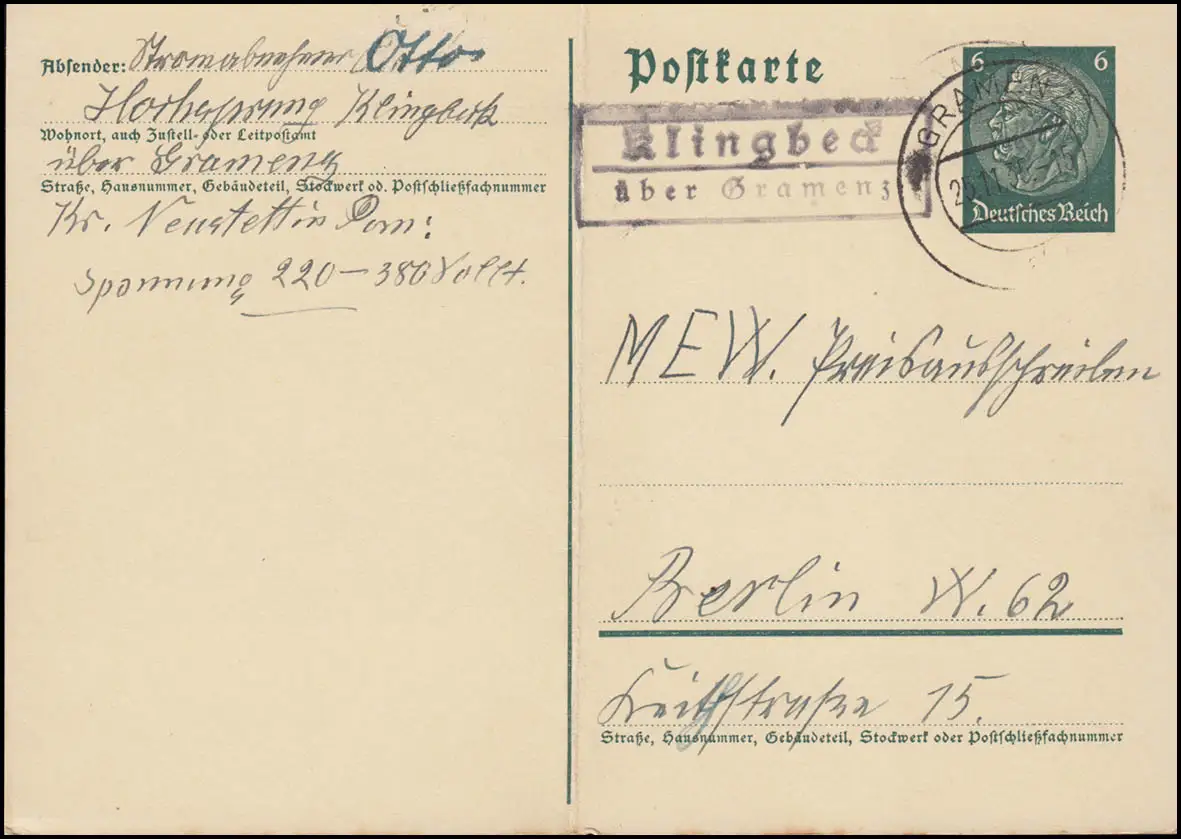 Absender: Stromabnehmer Otto
Klingbeck
Wohnort, auch Zustell- oder Leitpostamt
über Gramenz
Straße, Hausnummer, Gebäudeteil, Stockwerk od. Postschließfachnummer
Kr. Neustettin Pom:
Spannung 220 – 380 Vollt.
Postkarte
Klingbeck
über Gramenz
GRAMENZ
6 6
Deutsches Reich
MEW. Preisausschreiben
Berlin W. 62
Keithstraße 15.
Straße, Hausnummer, Gebäudeteil, Stockwerk oder Postschließfachnummer